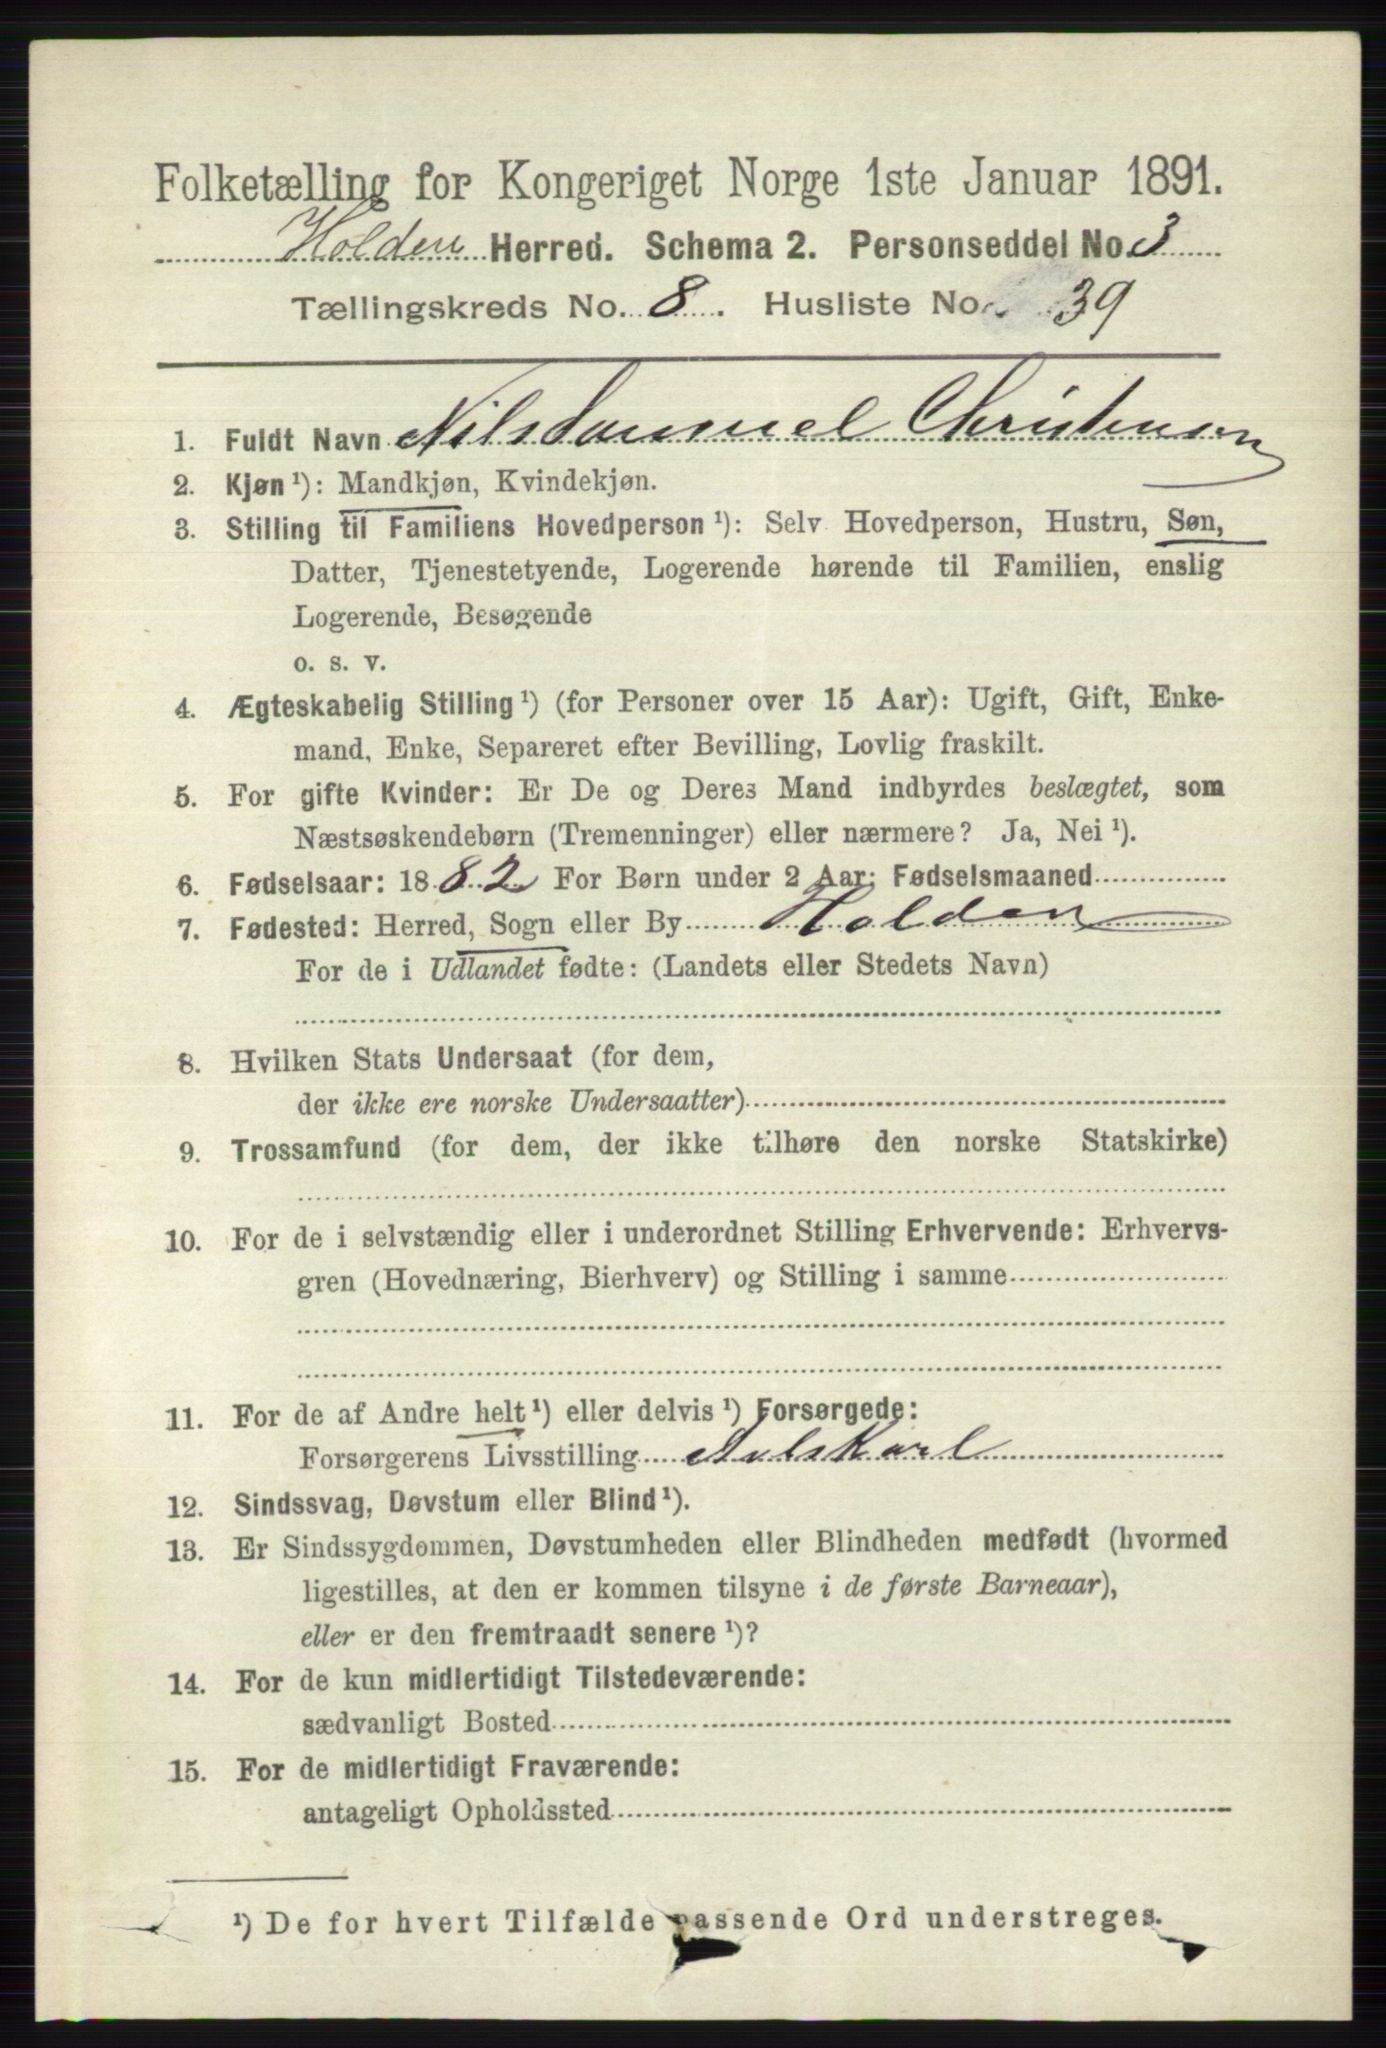 Folketælling for Kongeriget Norge 1ste Januar 1891.
Holden Herred. Schema 2. Personseddel No. 3
Tællingskreds No. 8. Husliste No. 39
1. Fuldt Navn Nils Samuel Christensen
2. Kjøn ¹): Mandkjøn, Kvindekjøn.
3. Stilling til Familiens Hovedperson ¹): Selv Hovedperson, Hustru, Søn,
Datter, Tjenestetyende, Logerende hørende til Familien, enslig
Logerende, Besøgende
o. s. v.
4. Ægteskabelig Stilling ¹) (for Personer over 15 Aar): Ugift, Gift, Enke-
mand, Enke, Separeret efter Bevilling, Lovlig fraskilt.
5. For gifte Kvinder: Er De og Deres Mand indbyrdes beslægtet, som
Næstsøskendebørn (Tremenninger) eller nærmere? Ja, Nei ¹).
6. Fødselsaar: 1882 For Børn under 2 Aar: Fødselsmaaned
7. Fødested: Herred, Sogn eller By Holden
For de i Udlandet fødte: (Landets eller Stedets Navn)
8. Hvilken Stats Undersaat (for dem,
der ikke ere norske Undersaatter)
9. Trossamfund (for dem, der ikke tilhøre den norske Statskirke)
10. For de i selvstændig eller i underordnet Stilling Erhvervende: Erhvervs-
gren (Hovednæring, Bierhverv) og Stilling i samme
11. For de af Andre helt ¹) eller delvis ¹) Forsørgede:
Forsørgerens Livsstilling
12. Sindssvag, Døvstum eller Blind ¹).
13. Er Sindssygdommen, Døvstumheden eller Blindheden medfødt (hvormed
ligestilles, at den er kommen tilsyne i de første Barneaar),
eller er den fremtraadt senere ¹)?
14. For de kun midlertidigt Tilstedeværende:
sædvanligt Bosted
15. For de midlertidigt Fraværende:
antageligt Opholdssted
¹) De for hvert Tilfælde passende Ord understreges.